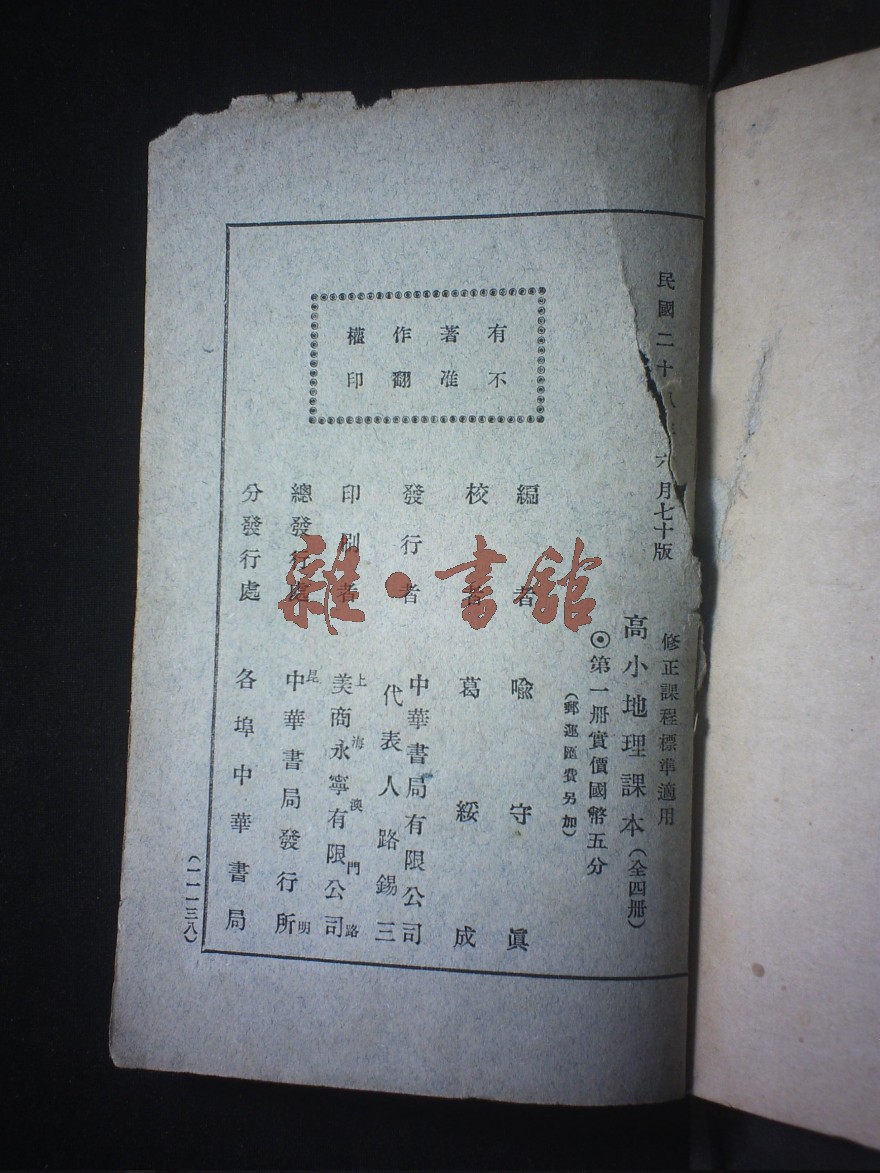 民國二十八年六月七十版
修正課程標準適用
高小地理課本（全四册）
⊙第一册實價國幣五分
（郵運匯費另加）
有著作權
不准翻印
編者 喩守眞
校者 葛綏成
發行者 中華書局有限公司
代表人路錫三
印刷者 上海澳門路
美商永寧有限公司
總發行處 昆明
中華書局發行所
分發行處 各埠中華書局
（一一一三八）
雜·書館